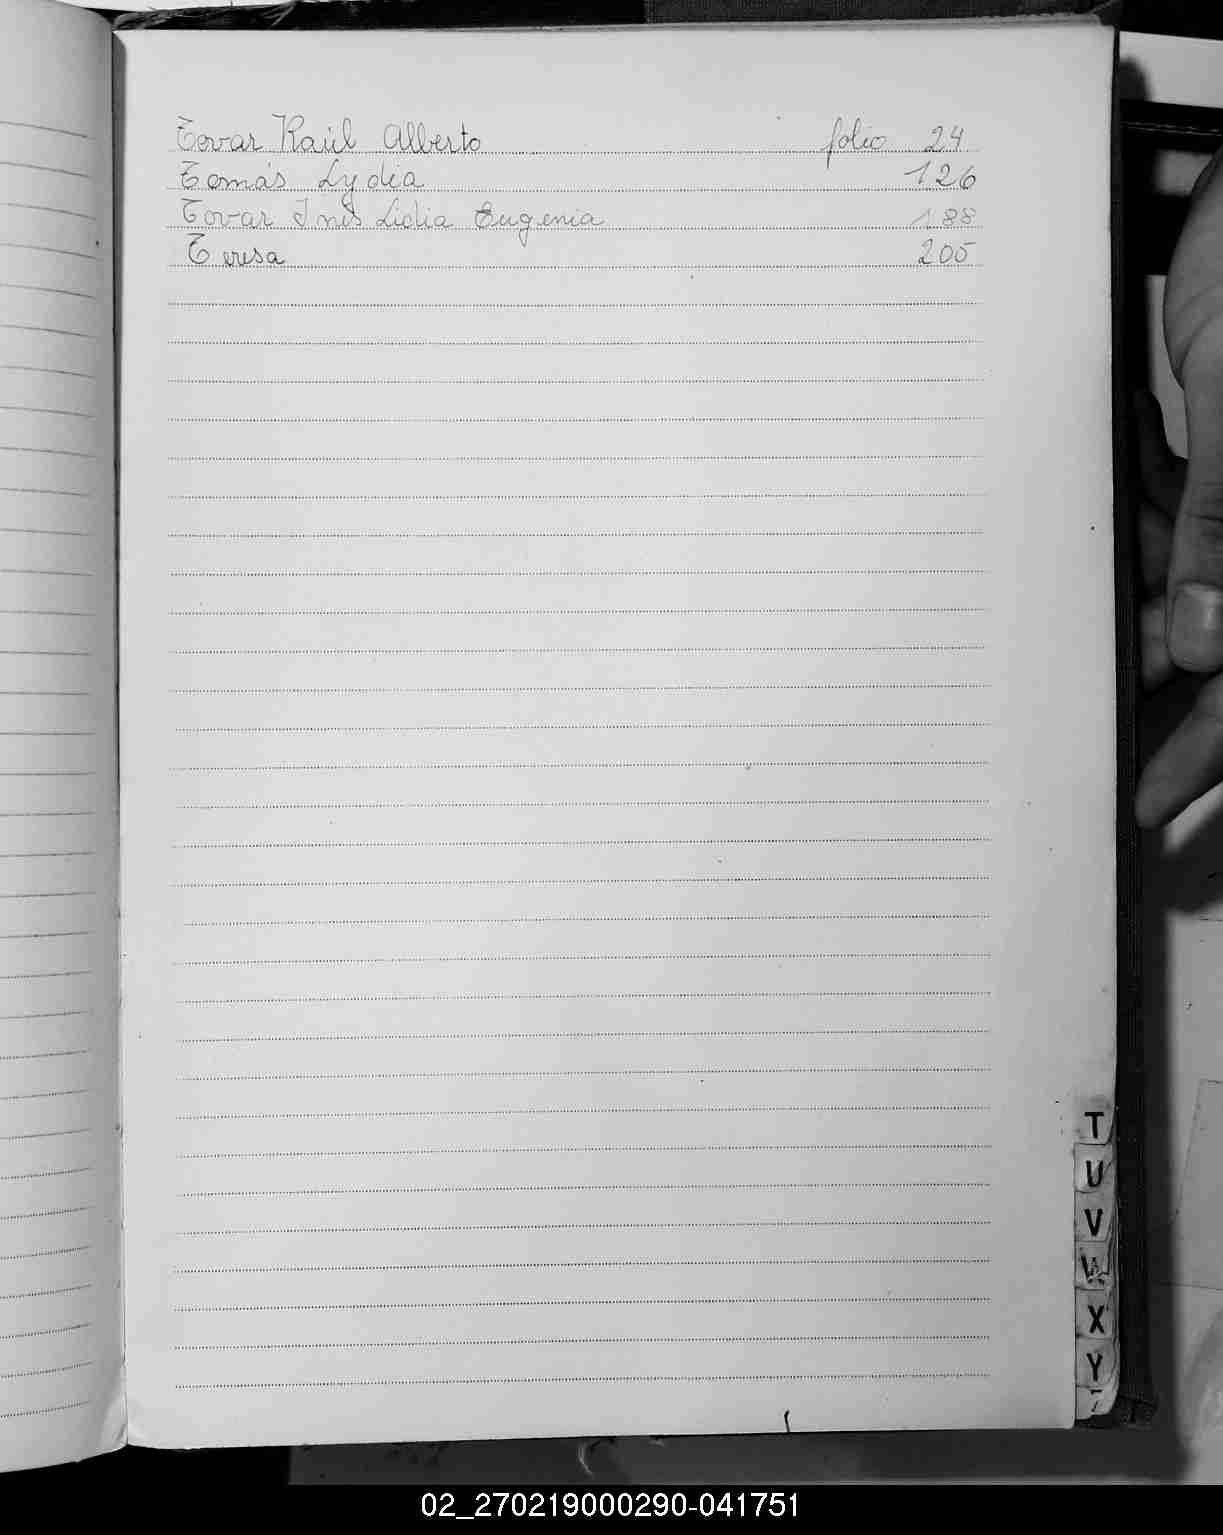 Tovar Raúl Alberto folio 24
Tomás Lydia 126
Tovar Inés Lidia Eugenia 188
Teresa 205
T
U
V
W
X
Y
Z
02_270219000290-041751